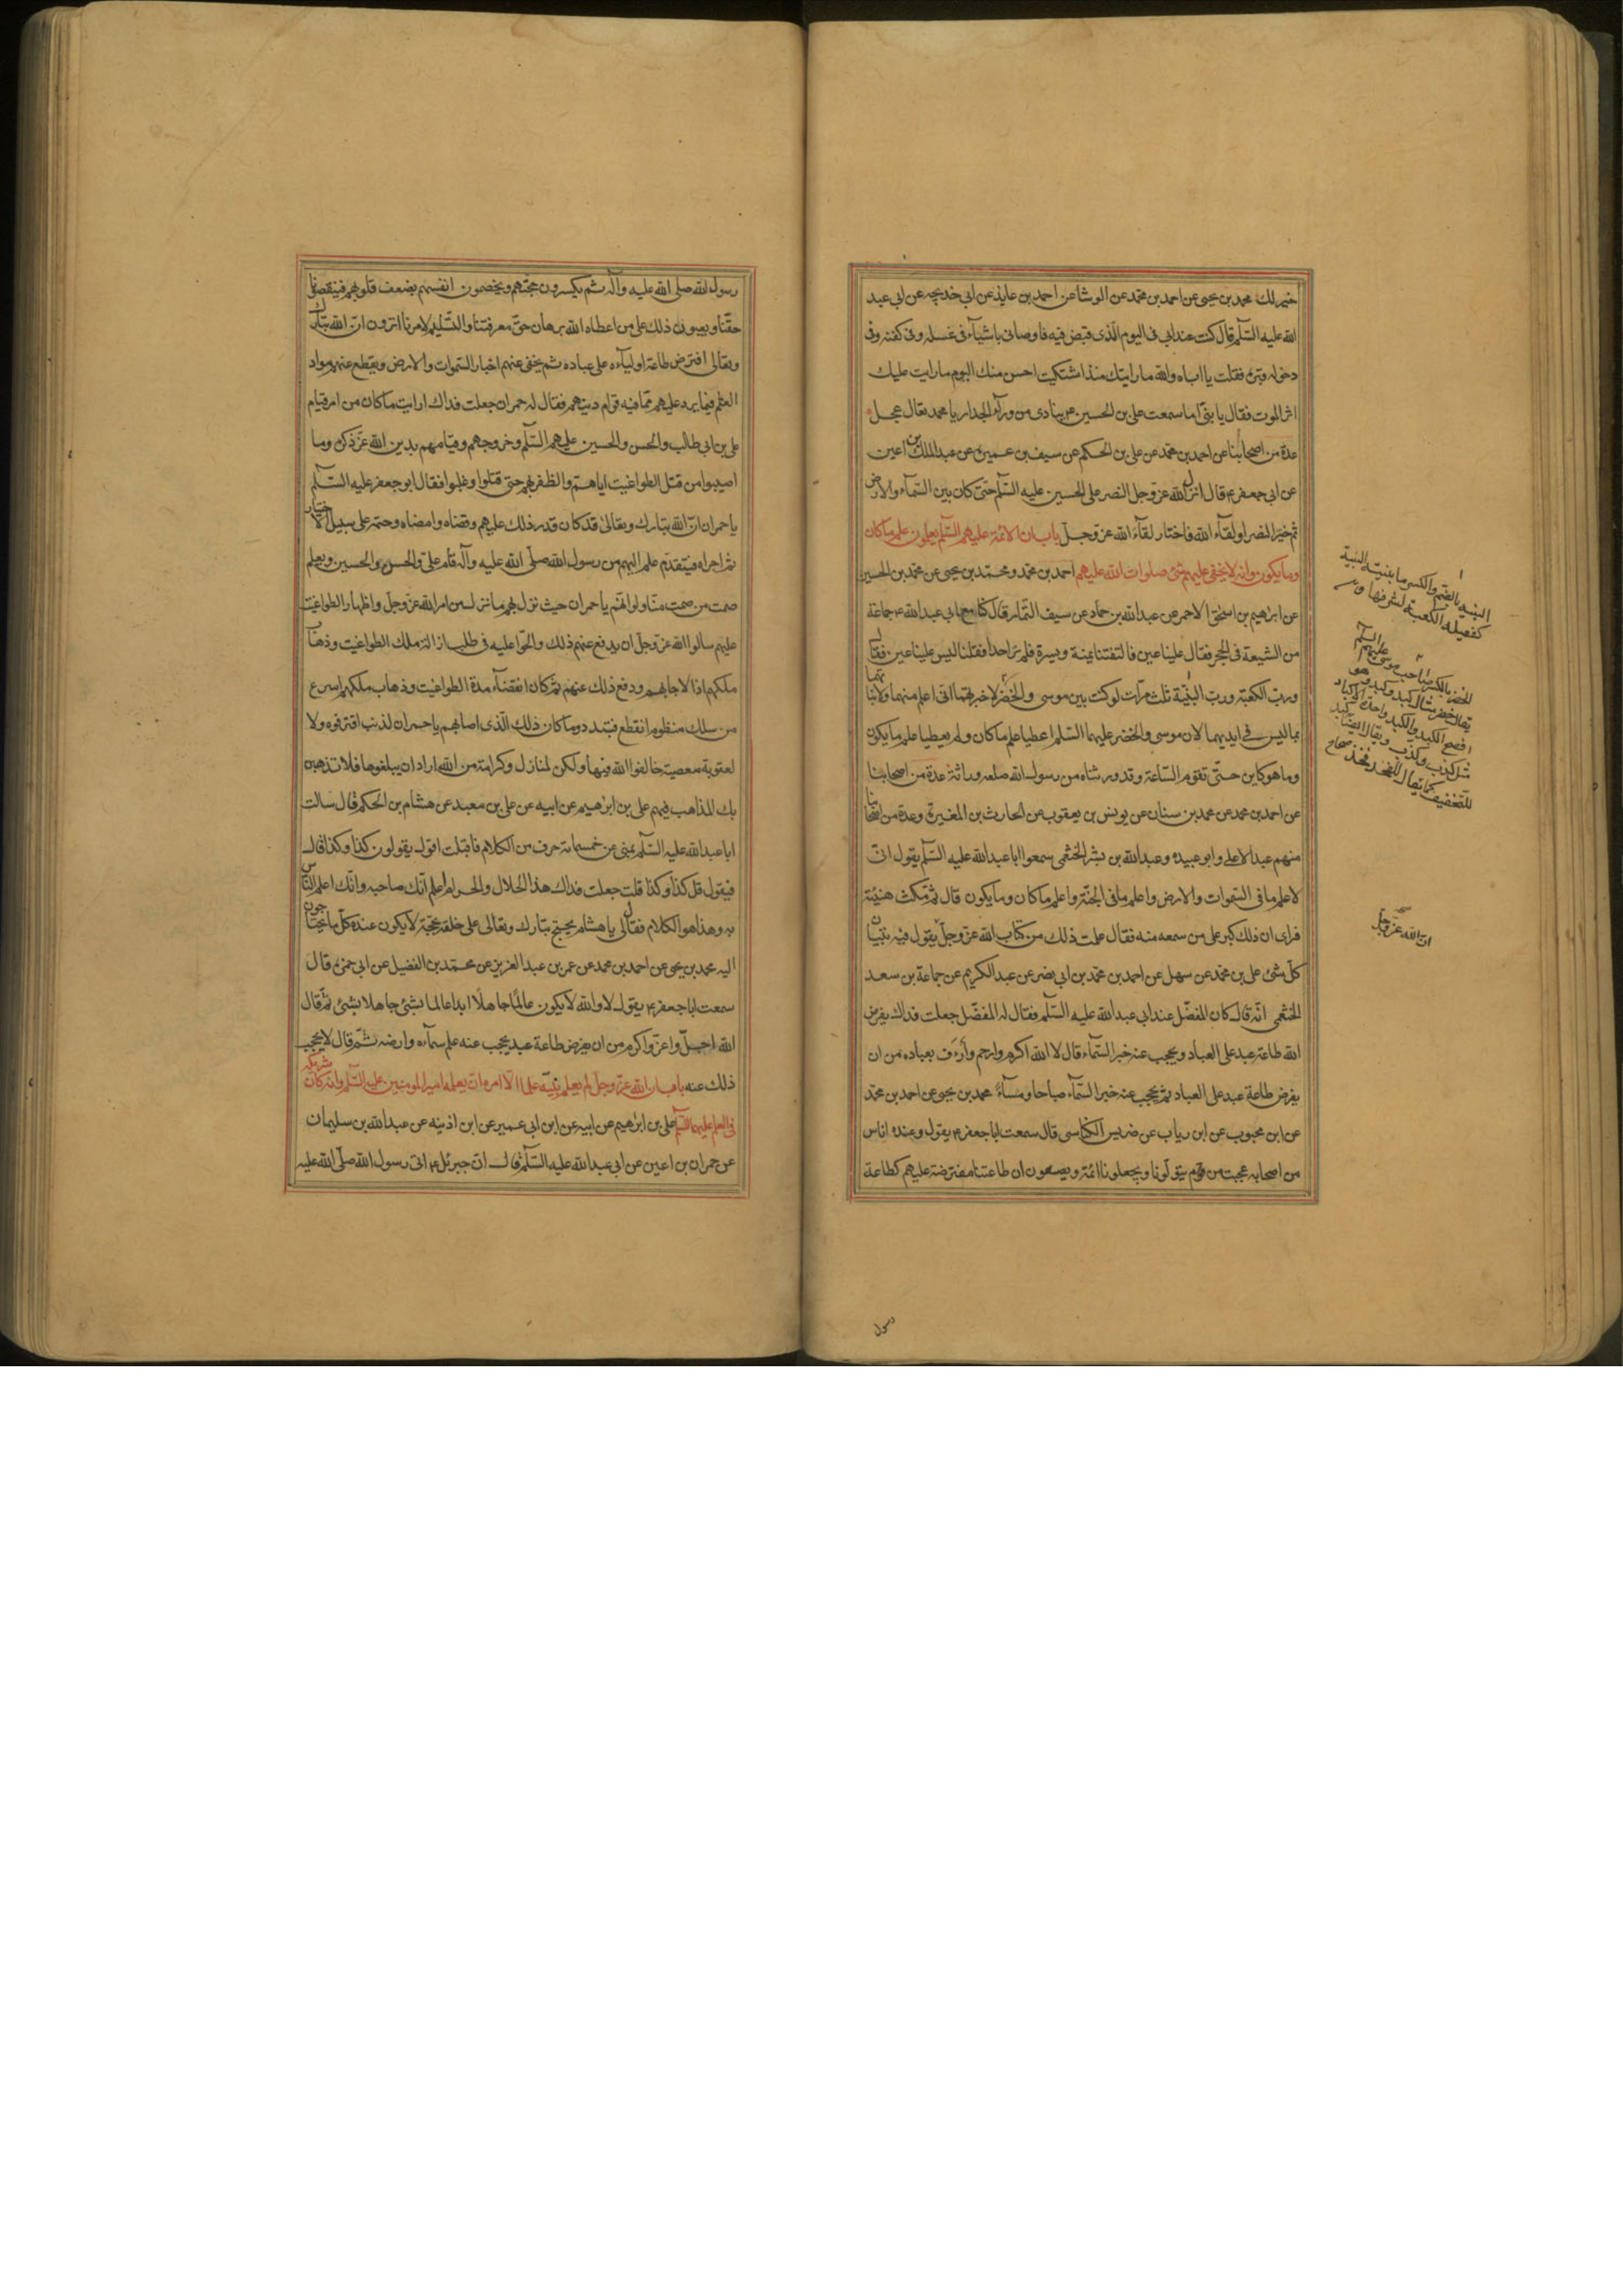 خير لك محمد بن يحيى عن احمد بن محمد عن الوشا عن احمد بن عايذ عن ابى خديجه عن ابى عبد
الله عليه السّلم قال كنت عند ابى فى اليوم الّذى قبض فيه فاوصانى باشيآء فى غسله وفى كفنه وفى
دخوله قبره فقلت يا اباه والله ما رايتك منذ اشتكيت احسن منك اليوم ما رايت عليك
اثر الموت فقال يا بنىّ اما سمعت على بن الحسين ع ينادى من ورآء الجدار يا محمد تعال عجل
عدة من اصحابنا عن احمد بن محمد عن على بن الحكم عن سيف بن عميرة عن عبد الملك بن اعين
عن ابى جعفر ع قال انزل الله عزّ وجل النصر على الحسين عليه السّلم حتّى كان بين السّمآء والارض
ثم خيّر النصر او لقآء الله فاختار لقآء الله عز وجلّ باب ان الائمّة عليهم السّلم يعلمون علم ما كان
وما يكون وانه لا يخفى عليهم شئ صلوات الله عليهم احمد بن محمّد ومحمّد بن يحيى عن محمّد بن الحسين
عن ابرهيم بن اسحق الاحمر عن عبد الله بن حمّاد عن سيف التمّار قال كنّا مع ابى عبد الله ع جماعة
من الشيعة فى الحجر فقال علينا عين فالتفتنا يمنة ويسرة فلم نر احدا فقلنا ليس علينا عين فقال
وربّ الكعبة وربّ البنّية ثلث مرّات لو كنت بين موسى والخضر لاخبرتهما انّى اعلم منهما ولانباتهما
بما ليس فى ايديهما لان موسى والخضر عليهما السّلم اعطيا علم ما كان ولم يعطيا علم ما يكون
وما هو كاين حتّى تقوم السّاعة وقد ورثناه من رسول الله صلعم وراثة عدة من اصحابنا
عن احمد بن محمد عن محمد بن سنان عن يونس بن يعقوب عن الحارث بن المغيرة وعدة من اصحابنا
منهم عبد الاعلى وابو عبيدة وعبد الله بن بشر الخثعمى سمعوا ابا عبد الله عليه السّلم يقول انّى
لاعلم ما فى السّموات والارض واعلم ما فى الجنّة واعلم ما كان وما يكون قال ثمّ مكث هنيئة
فراى ان ذلك كبر على من سمعه منه فقال علمت ذلك من كتاب الله عزّ وجلّ يقول فيه تبيان
كلّ شئ على بن محمّد عن سهل عن احمد بن محمّد بن ابى نصر عن عبد الكريم عن جماعة بن سعد
الخثعمى انّه قال كان المفضّل عند ابى عبد الله عليه السّلم فقال له المفضّل جعلت فداك يفرض
الله طاعة عبد على العباد ويحجب عنه خبر السّمآء قال لا الله اكرم وارحم وأرءف بعباده من ان
يفرض طاعة عبد على العباد ثم يحجب عنه خبر السّمآء صباحا ومسآءً محمد بن يحيى عن احمد بن محمّد
عن ابن محبوب عن ابن رياب عن ضريس الكناسى قال سمعت ابا جعفر ع يقول وعنده اناس
من اصحابه عجبت من قوم يتولّونا ويجعلونا ائمّة ويصفون ان طاعتنا مفترضة عليهم كطاعة
البنيه بالضم والكسر ما بنيته والبنية
كفعيلة الكعبة لشرفها
الخضر بالكسر صاحب موسى عليهم السلم
يقال خضر مثال كبد وكبد وهو
افصح الكبد والكبد واحدة الاكباد
مثل كذب وكذب ويقال ايضا كبد
للتخفيف كما يقال للفخذ فخذ صحاح
ان الله عزّ وجلّ
رسول
رسول الله صلى الله عليه وآله ثم يكسرون حجّتهم ويخصمون انفسهم بضعف قلوبهم فينقصونا
حقّنا ويعيبون ذلك على من اعطاه الله برهان حقّ معرفتنا والتّسليم لامرنا اترون ان الله تبارك
وتعالى افترض طاعة اوليآءه على عباده ثم يخفى عنهم اخبار السّموات والارض ويقطع عنهم مواد
العلم فيما يرد عليهم ممّا فيه قوام دينهم فقال له حمران جعلت فداك ارايت ما كان من امر قيام
على بن ابى طالب والحسن والحسين عليهم السّلم وخروجهم وقيامهم بدين الله عزّ ذكره وما
اصيبوا من قتل الطواغيت اياهم والظفر بهم حتى قتلوا وغلبوا فقال ابو جعفر عليه السّلم
يا حمران انّ الله تبارك وتعالى قد كان قدر ذلك عليهم وقضاه وامضاه وحتمه على سبيل الاختيار
ثم اجراه فبتقدّم علم اليهم من رسول الله صلّى الله عليه وآله قام علىّ والحسن والحسين وبعلم
صمت من صمت منّا ولو انّهم يا حمران حيث نزل بهم ما نزل من امر الله عزّ وجلّ واظهار الطواغيت
عليهم سالوا الله عزّ وجلّ ان يدفع عنهم ذلك والحّوا عليه فى طلب ازالة ملك الطواغيت وذهاب
ملكهم اذا لاجابهم ودفع ذلك عنهم ثمّ كان انقضآء مدة الطواغيت وذهاب ملكهم اسرع
من سلك منظوم انقطع فتبدد وما كان ذلك الّذى اصابهم يا حمران لذنب اقترفوه ولا
لعقوبة معصية خالفوا الله فيها ولكن لمنازل وكرامة من الله اراد ان يبلغوها فلا تذهبن
بك المذاهب فيهم على بن ابرهيم عن ابيه عن على بن معبد عن هشام بن الحكم قال سالت
ابا عبد الله عليه السّلم بمنى عن خمسمائة حرف من الكلام فاقبلت اقول يقولون كذا وكذا قال
فيقول قل كذا وكذا قلت جعلت فداك هذا الحلال والحرام اعلم انّك صاحبه وانّك اعلم النّاس
به وهذا هو الكلام فقال لى يا هشام يحتج تبارك وتعالى على خلقه بحجّة لا يكون عنده كلّ ما يحتاجون
اليه محمد بن يحيى عن احمد بن محمد عن عمر بن عبد العزيز عن محمّد بن الفضيل عن ابى حمزة قال
سمعت ابا جعفر ع يقول لا والله لا يكون عالمًا جاهلًا ابدا عالما بشئ جاهلا بشئ ثمّ قال
الله اجلّ واعزّ واكرم من ان يفرض طاعة عبد يحجب عنه علم سمآءه وارضه ثمّ قال لا يحجب
ذلك عنه باب ان الله عزّ وجلّ لم يعلم نبيّه علما الّا امره ان يعلمه امير المومنين عليه السّلم وانّه كان شريكه
فى العلم عليهما السّلم على بن ابرهيم عن ابيه عن ابن ابى عمير عن ابن اذينه عن عبد الله بن سليمان
عن حمران بن اعين عن ابى عبد الله عليه السّلم قال انّ جبرئل ع اتى رسول الله صلّى الله عليه